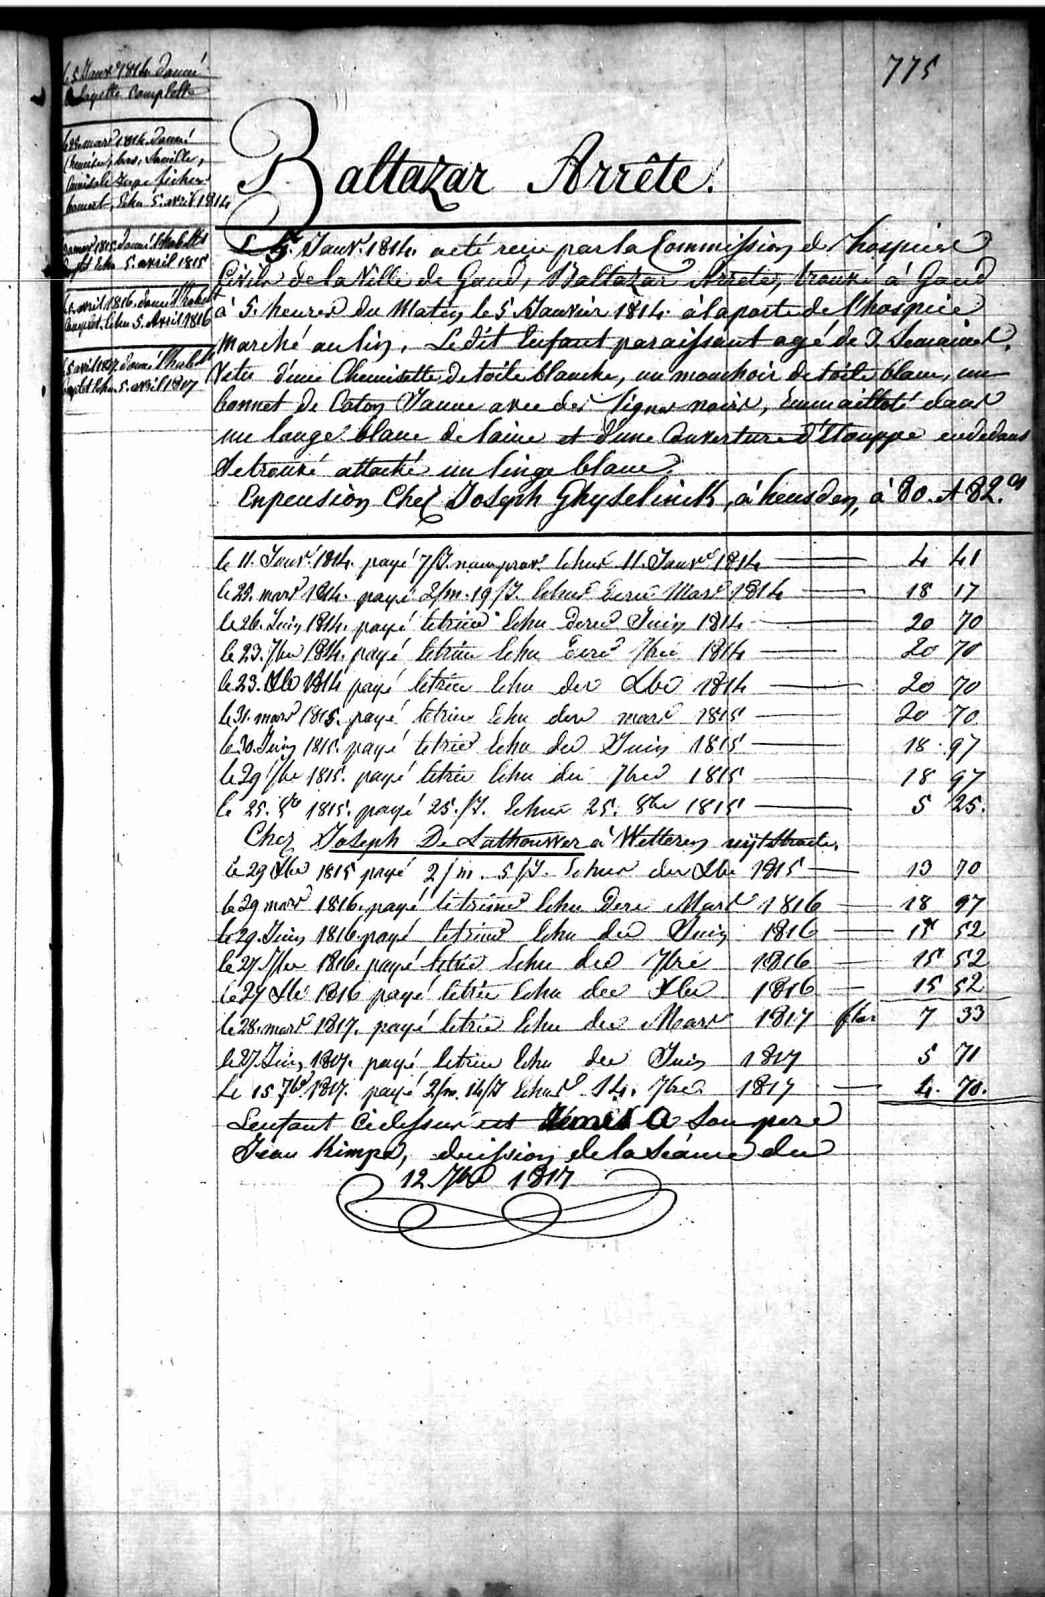 775
le 5 Janvr 1814 donné
a layette Complette
le 28 mars 1814. donné
bonnet, Echu 5. avril 1814
Echu 5. avril 1815
avril 1816. donné l'habillt
Echu 5. Avril 1816
5 avril 1817. donné l'habillt
Echu. 5. avril 1817
Baltazar Arrête.
L 5. Janvr 1814. a eté reçu par la Commission de l'hospice
Civils de la Ville de Gand, Baltazar Arrete, trouvé à Gand
à 5. heures du Matin le 5 Janvier 1814. à la porte de l'hospice
Marché au lin, Le dit Enfant paraissant agé de 2 Semaines.
Vetu d'une Chemisette de toile blanche, un mouchoir de toile blanc, un
bonnet de Caton Jaune avec des lignes noires, Emmailloté dans
un lange blanc de laine et d'une Couverture d'Etouppe en dedans
se trouvé attaché un linge blanc.
Enpension Chez Joseph Ghyselinck, à heusden, à 80. et 82.
le 11. Janvr 1814. payé 7/J. nourprov. Echus 11. Janvr 1814 4 41
le 28. mars 1814. payé 2/m. 19/J. Echus Dern Mars 1814 18 17
le 26. Juin 1814. payé letrim Echu Dern Juin 1814 20 70
le 23. 7bre 1814. payé letrim Echu Dern 7bre 1814 20 70
le 23. Xbr 1814 payé letrim Echu der Xbr 1814 20 70
le 31. mars 1815. payé letrim Echu dern mars 1815 20 70
le 30. Juin 1815. payé letrim Echu der Juin 1815 18 97
le 29 7bre 1815. payé letrim Echu der 7bre 1815 18 97
le 25. 8br 1815. payé 25./J. Echus 25. 8br 1815 5 25.
Chez Joseph De Lathouwer a Wetteren uijtstraete.
le 29 Xbr 1815 payé 2/m. 5/J. Echus der Xbr 1815 13 70
le 29 mars 1816. payé letrim Echu Dern Mars 1816 18 97
le 29. Juin 1816. payé letrim Echu der Juin 1816 15 52
le 27 7bre 1816. payé letrim Echu der 7bre 1816 15 52
le 27 Xbr 1816 payé letrim Echu der Xbr 1816 15 52
le 28. mars 1817. payé letrim Echu der Mars 1817 flor 7 33
le 27. Juin 1817. payé letrim Echu der Juin 1817 5 71
Le 15 7br 1817. payé 2/m. 14/J Echus 14. 7bre 1817 4. 70.
L'enfant Cidessus est Remis a Son pere
Jean Kimpe, decission de la Séance du
12 7br 1817